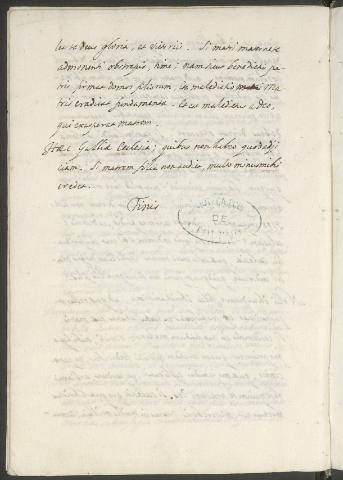 let te deus gloria, et
Si mati
admonenti obstrepis, time; nam sicut benedictio pa-
tris firmat domos filiorum, ita maledictio ma-
tris eradicat fundamenta. Et est maledictus a deo,
qui exasperat matrem.
Hæc Gallia Ecclesia; quibus non habeo quod adji-
ciam. Si matrem filia non audis, multo minus mihi
credes.
Finis
DE